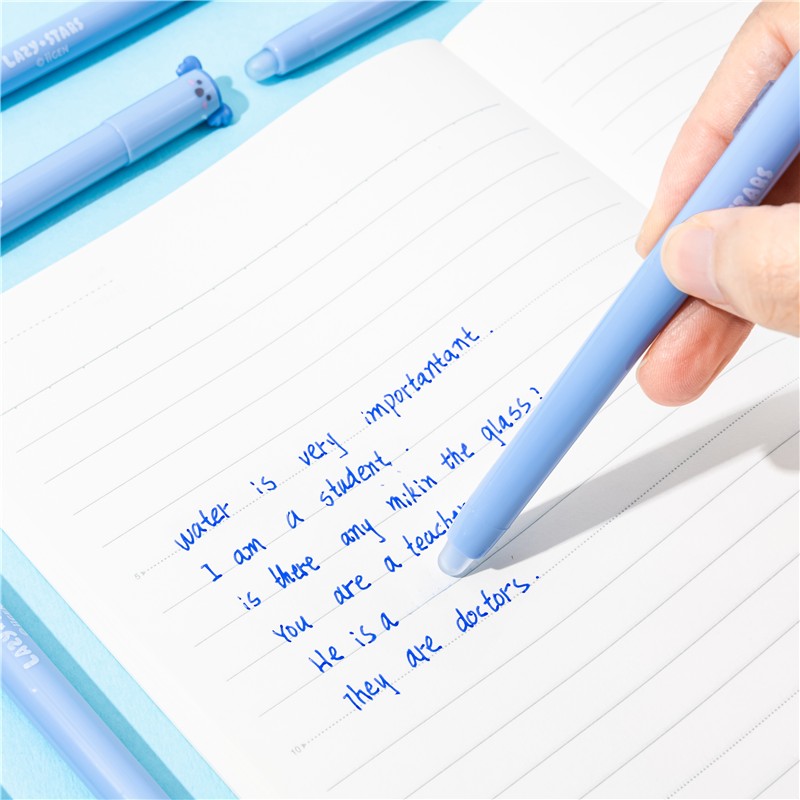 LAZY★STARS
©IIGEN
STARS
water is very importantant.
I am a student.
is there any mikin the glass?
You are a teacher
He is a
They are doctors.
5
10
LAZY